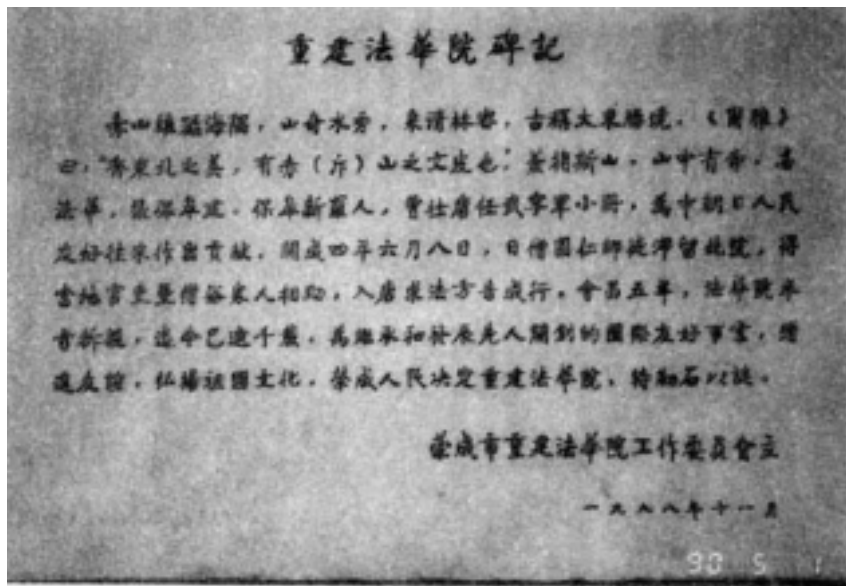 重建法華院碑記
赤山雄踞海隅，山奇水秀，泉清林密，古稱大東勝境。《爾雅》
曰："齊東北之美，有赤（斥）山之文皮也。"蓋指斯山。山中有寺，名
法華，張保皋建。保皋新羅人，曾仕唐任武寧軍小將，為中朝日人民
友好往來作出貢獻。開成四年六月八日，日僧圓仁師徒滯留此院，得
當地官吏暨僧俗眾人相助，入唐求法方告成行。會昌五年，法華院奉
旨拆毀，迄今已逾千載。為繼承和發展先人開創的國際友好事業，增
進友誼，弘揚祖國文化，榮成人民決定重建法華院，特勒石以誌。
榮成市重建法華院工作委員會立
一九八八年十一月
90 5 1